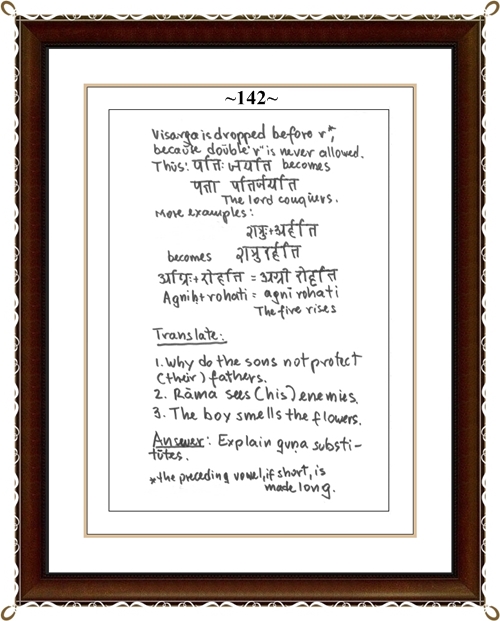 ~142~
Visarga is dropped before r*,
because double "r" is never allowed.
Thus: पतिः जयति becomes
पतिर्जयति
The lord conquers.
More examples:
शत्रुः+अर्हति
becomes शत्रुरर्हति
अग्निः+रोहति = अग्नी रोहति
Agniḥ+rohati = agnī rohati
The fire rises
Translate:
1. Why do the sons not protect
(their) fathers.
2. Rāma sees (his) enemies.
3. The boy smells the flowers.
Answer: Explain guṇa substi-
tutes.
*the preceding vowel, if short, is
made long.